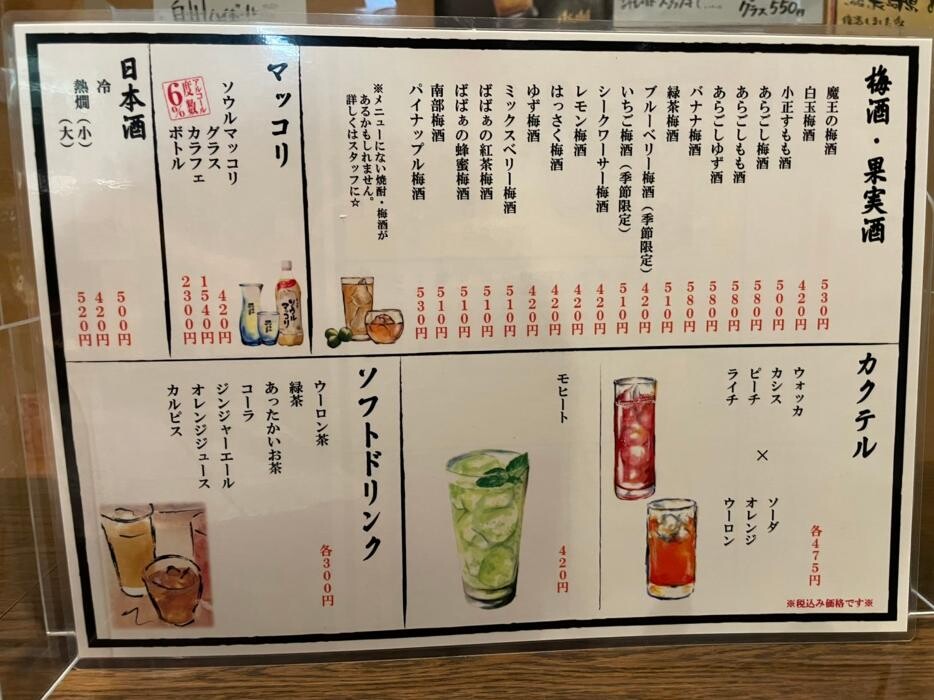 グラス550円
梅酒・果実酒
魔王の梅酒 530円
白玉梅酒 420円
小正すもも酒 500円
あらごし梅酒 580円
あらごしもも酒 580円
あらごしゆず酒 580円
バナナ梅酒 580円
緑茶梅酒 510円
ブルーベリー梅酒（季節限定） 420円
いちご梅酒（季節限定） 510円
シークワーサー梅酒 420円
レモン梅酒 420円
はっさく梅酒 420円
ゆず梅酒 420円
ミックスベリー梅酒 510円
ばばぁの紅茶梅酒 510円
ばばぁの蜂蜜梅酒 510円
南部梅酒 510円
パイナップル梅酒 530円
※メニューにない焼酎・梅酒が
あるかもしれません。
詳しくはスタッフに☆
マッコリ
ソウルマッコリ
グラス 420円
カラフェ 1540円
ボトル 2300円
アルコール
度数
6%
ソウル
マッコリ
日本酒
冷 500円
熱燗（小） 420円
（大） 520円
カクテル
ウォッカ
カシス
ピーチ
ライチ
×
ソーダ
オレンジ
ウーロン
各475円
※税込み価格です※
モヒート 420円
ソフトドリンク
ウーロン茶
緑茶
あったかいお茶
コーラ
ジンジャーエール
オレンジジュース
カルピス
各300円